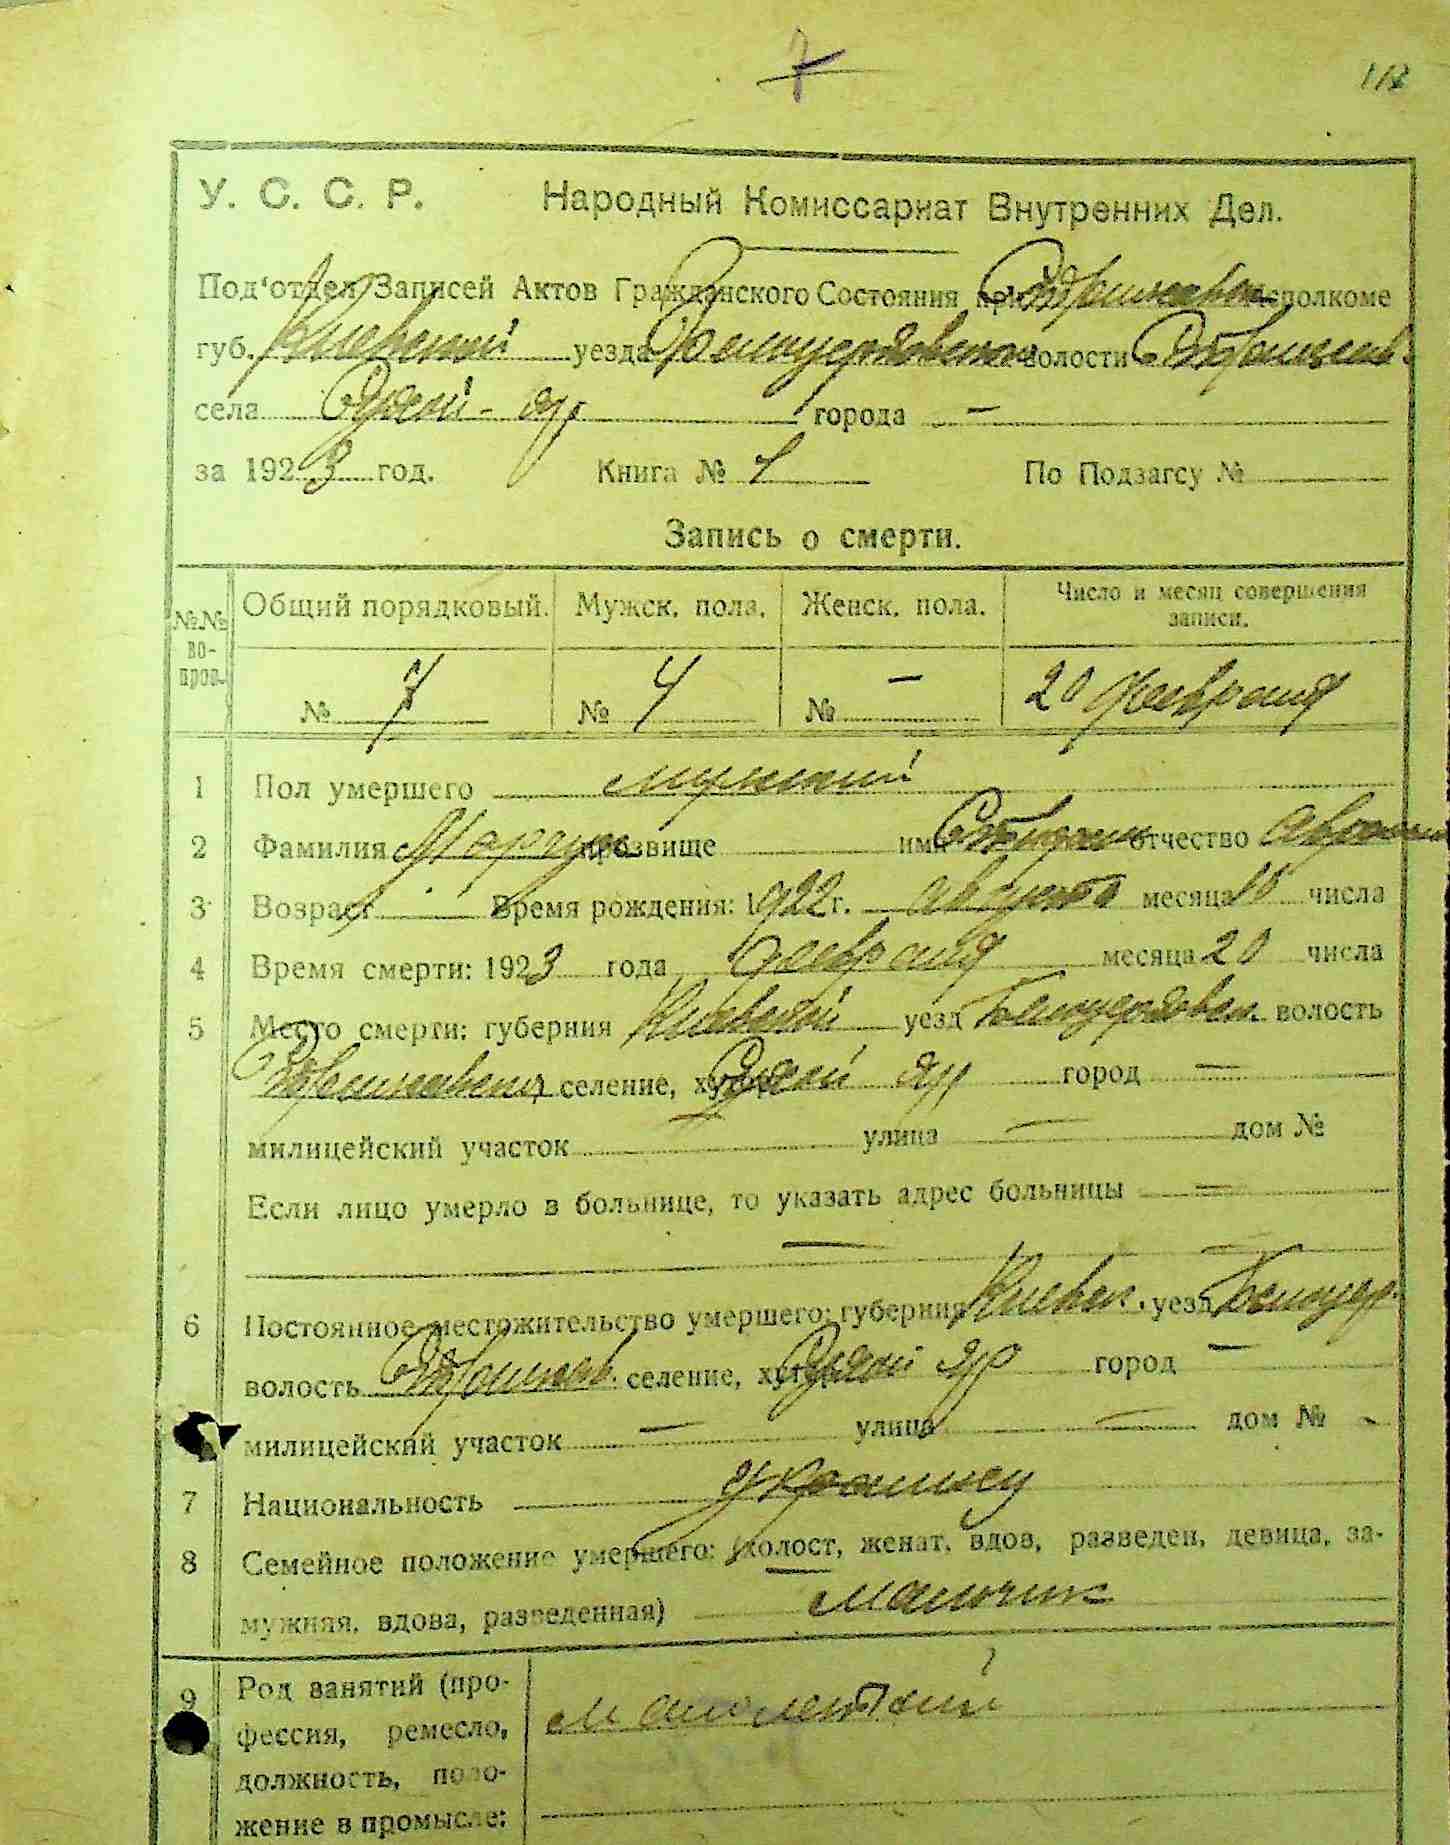 7
117
У. С. С. Р. Народный Комиссариат Внутренних Дел.
Под'отдел Записей Актов Гражданского Состояния при исполкоме
губ. Киевской уезда Белоцерковского волости
села Сухой-яр города —
за 1923 год. Книга № 1 По Подзагсу №
Запись о смерти.
№№ во-прос. Общий порядковый. Мужск. пола. Женск. пола. Число и месяц совершения записи.
№ 7 № 4 № — 20 февраля
1 Пол умершего мужской
2 Фамилия прозвище имя Степан отчество
3 Возраст Время рождения: 1922 г. августа месяца числа
4 Время смерти: 1923 года февраля месяца 20 числа
5 Место смерти: губерния Киевской уезд волость
селение, хутор Сухой яр город —
милицейский участок улица — дом №
Если лицо умерло в больнице, то указать адрес больницы —
— —
6 Постоянное местожительство умершего: губерния Киевск. уезд Белоцер.
волость селение, хутор Сухой яр город —
милицейский участок — улица — дом № -
7 Национальность украинец
8 Семейное положение умершего: (холост, женат, вдов, разведен, девица, за-
мужняя, вдова, разведенная) мальчик
9 Род занятий (про-
фессия, ремесло, малолетний
должность, поло-
жение в промысле: